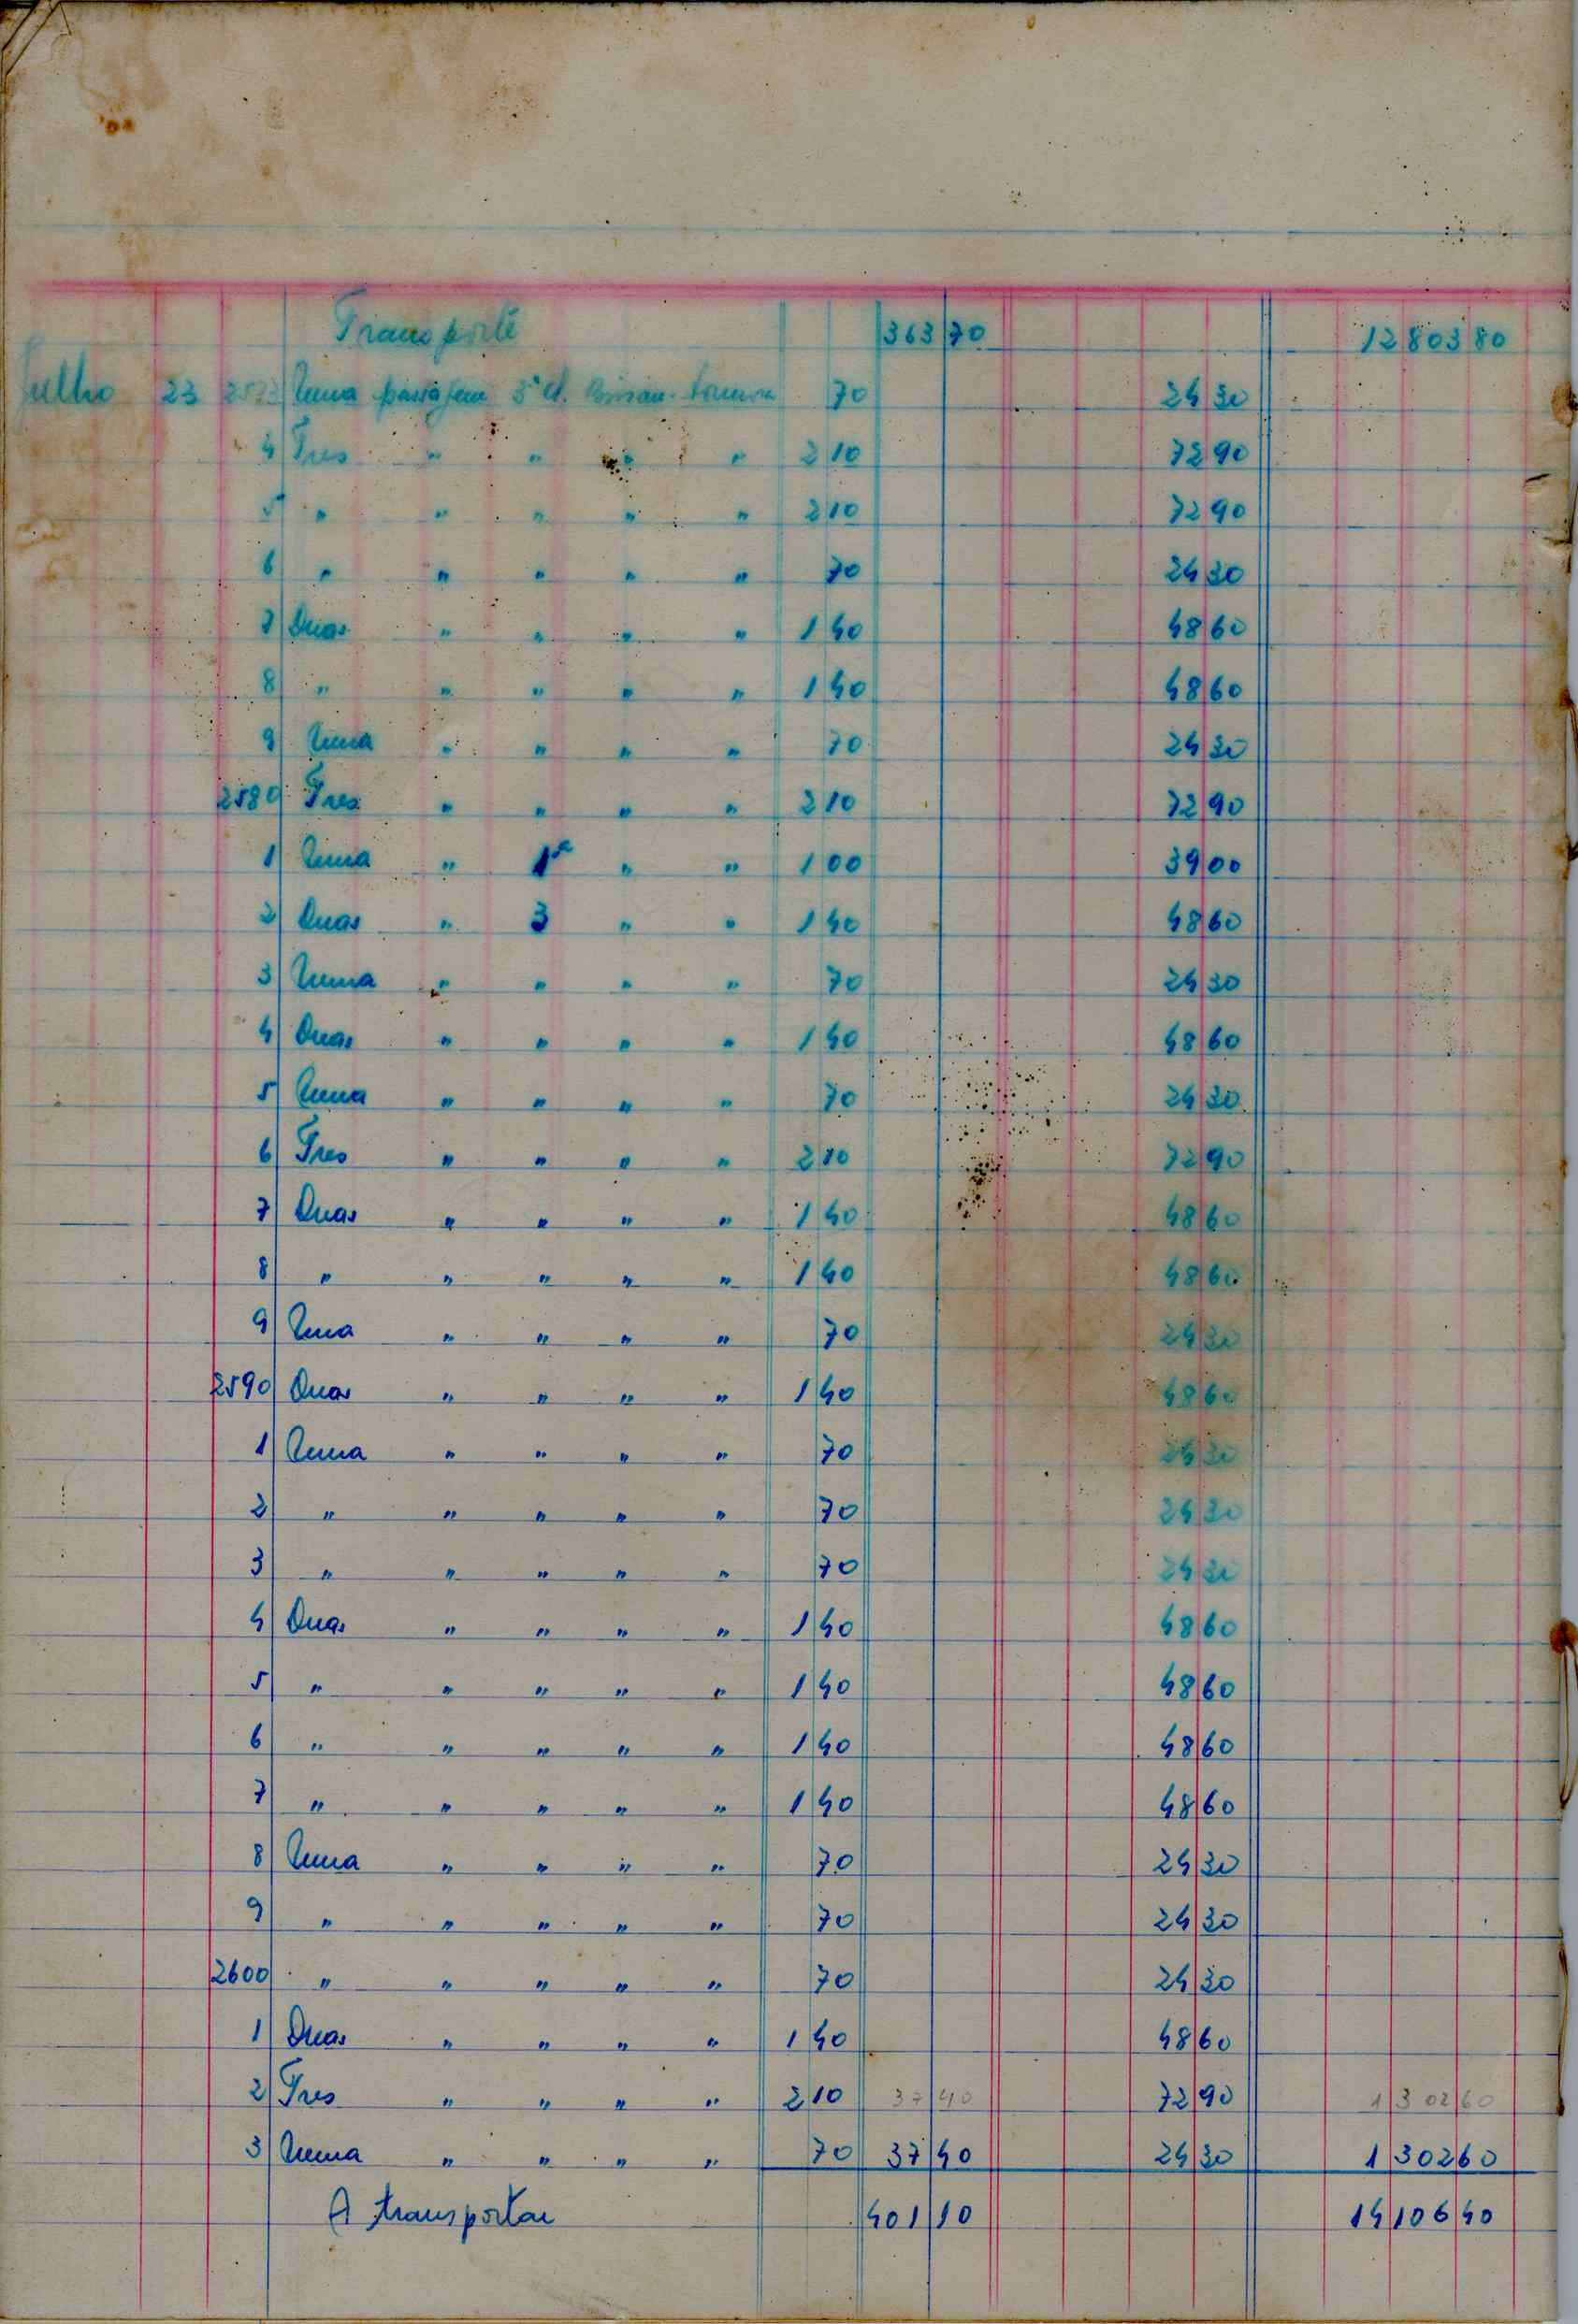 Transporte 363 70 12803 80
Julho 23 2573 Uma passagem 3ª cl. 70 24 30
4 Tres " " " " 2 10 72 90
5 " " " " " 2 10 72 90
6 " " " " " 70 24 30
7 Duas " " " " 1 40 48 60
8 " " " " " 1 40 48 60
9 Uma " " " " 70 24 30
2580 Tres " " " " 2 10 72 90
1 Uma " 1ª " " 1 00 39 00
2 Duas " 3 " " 1 40 48 60
3 Uma " " " " 70 24 30
4 Duas " " " " 1 40 48 60
5 Uma " " " " 70 24 30
6 Tres " " " " 2 10 72 90
7 Duas " " " " 1 40 48 60
8 " " " " " 1 40 48 60
9 Uma " " " " 70 24 30
2590 Duas " " " " 1 40 48 60
1 Uma " " " " 70 24 30
2 " " " " " 70 24 30
3 " " " " " 70 24 30
4 Duas " " " " 1 40 48 60
5 " " " " " 1 40 48 60
6 " " " " " 1 40 48 60
7 " " " " " 1 40 48 60
8 Uma " " " " 70 24 30
9 " " " " " 70 24 30
2600 " " " " " 70 24 30
1 Duas " " " " 1 40 48 60
2 Tres " " " " 2 10 37 40 72 90 1302 60
3 Uma " " " " 70 37 40 24 30 1302 60
A transportar 401 10 14106 40